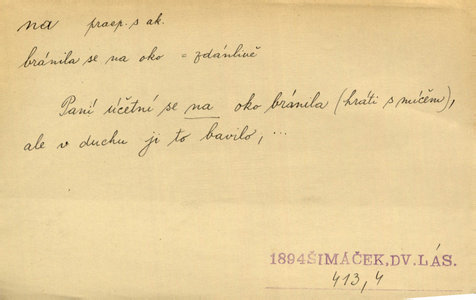 na praep. s ak.
bránila se na oko = zdánlivě
Paní účetní se na oko bránila (hráti s míčem),
ale v duchu ji to bavilo, ...
1894 ŠIMÁČEK, DV. LÁS.
413,4